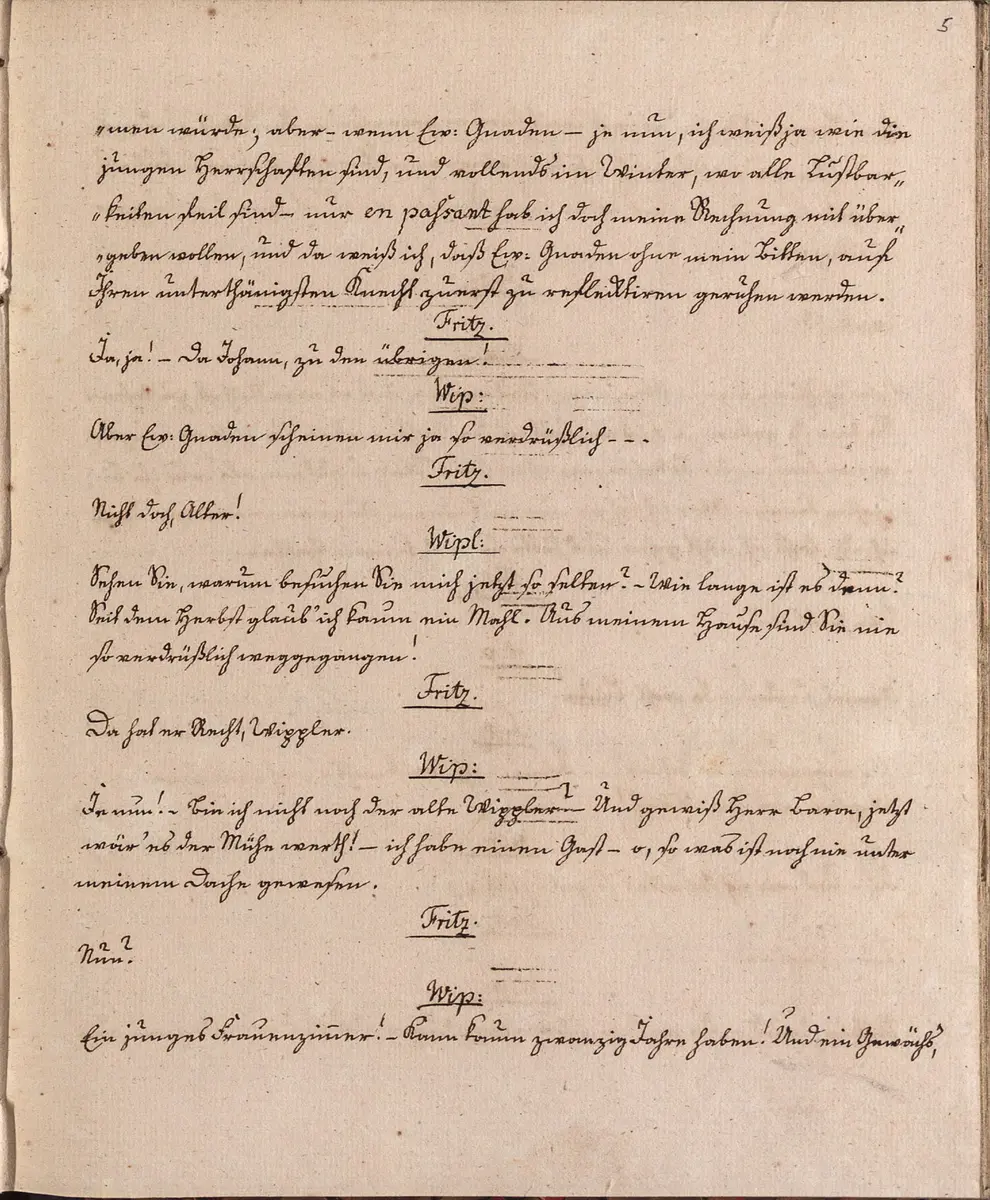 5
„men würde; aber – wenn Ew: Gnaden – je nun, ich weiß ja wie die
jungen Herrschaften sind, und vollends im Winter, wo alle Lustbar„
„keiten feil sind – nur en passant hab ich doch meine Rechnung mit über„
„geben wollen, und da weiß ich, daß Ew: Gnaden ohne mein Bitten, auf
Ihren unterthänigsten Knecht zuerst zu reflecktiren geruhen werden.
Fritz.
Ja, ja! – Da Johann, zu den übrigen!
Wip:
Aber Ew: Gnaden scheinen mir ja so verdrüßlich - - -
Fritz.
Nicht doch, Alter!
Wipl:
Sehen Sie, warum besuchen Sie mich jetzt so selten? – Wie lange ist es denn?
Seit dem Herbst glaub' ich kaum ein Mahl. Aus meinem Hause sind Sie nie
so verdrüßlich weggegangen!
Fritz.
Da hat er Recht, Wippler.
Wip:
Je nun! – bin ich nicht noch der alte Wippler? – Und gewiß Herr Baron, jetzt
wär' es der Mühe werth! – ich habe einen Gast – o, so was ist noch nie unter
meinem Dache gewesen.
Fritz.
Nun?
Wip:
Ein junges Frauenzim̅er! – Kann kaum zwanzig Jahre haben! Und ein Gewächs,